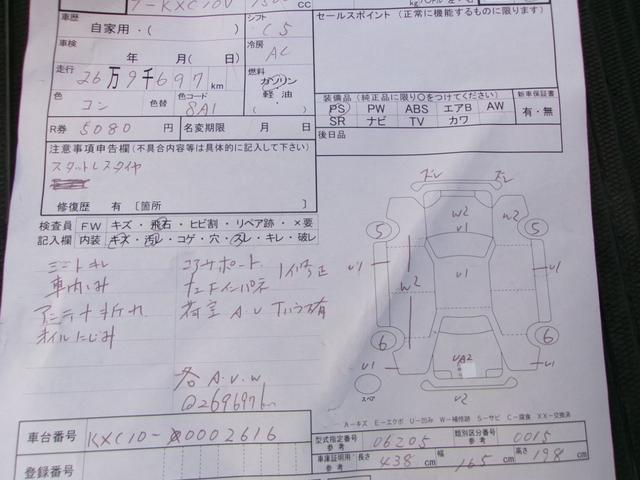 T-KXC10V 1500 CC
車歴 シフト C5
自家用・( )
車検 冷房 AC
年 月(日)
走行 26万9千697km 燃料 ガソリン
軽油
色 コン 色替 色コード 8A1
R券 5080円 名変期限 月 日
注意事項申告欄(不具合内容等は具体的に記入して下さい)
スタットレスタイヤ
修復歴 有[箇所 ]
セールスポイント(正常に機能するものに限ります)
装備品(純正品に限り○をつけてください) 新車保証書
PS PW ABS エアB AW 有・無
SR ナビ TV カワ
後日品
検査員 FW キズ・飛石・ヒビ割・リペア跡・×要
記入欄 内装 キズ・汚レ・コゲ・穴・スレ・キレ・破レ
シートキレ
車内いみ
アンテナ折れ
オイルにじみ
コアサポート
荷室 A.U 下いう有
各 A.U.W
@269697km
ズレ ズレ
W2 W2
U1
5 5
U1 U1 U1
W2
6 6
UA2
U1 U1
スペア U2
A-キズ E-エクボ U-凹み W-補修跡 S-サビ C-腐食 XX-交換済
車台番号 KXC10-0002616
登録番号
型式指定番号 参考 06205 類別区分番号 参考 0015
車庫証明用 参考 長さ 438cm 幅 165cm 高さ 198cm